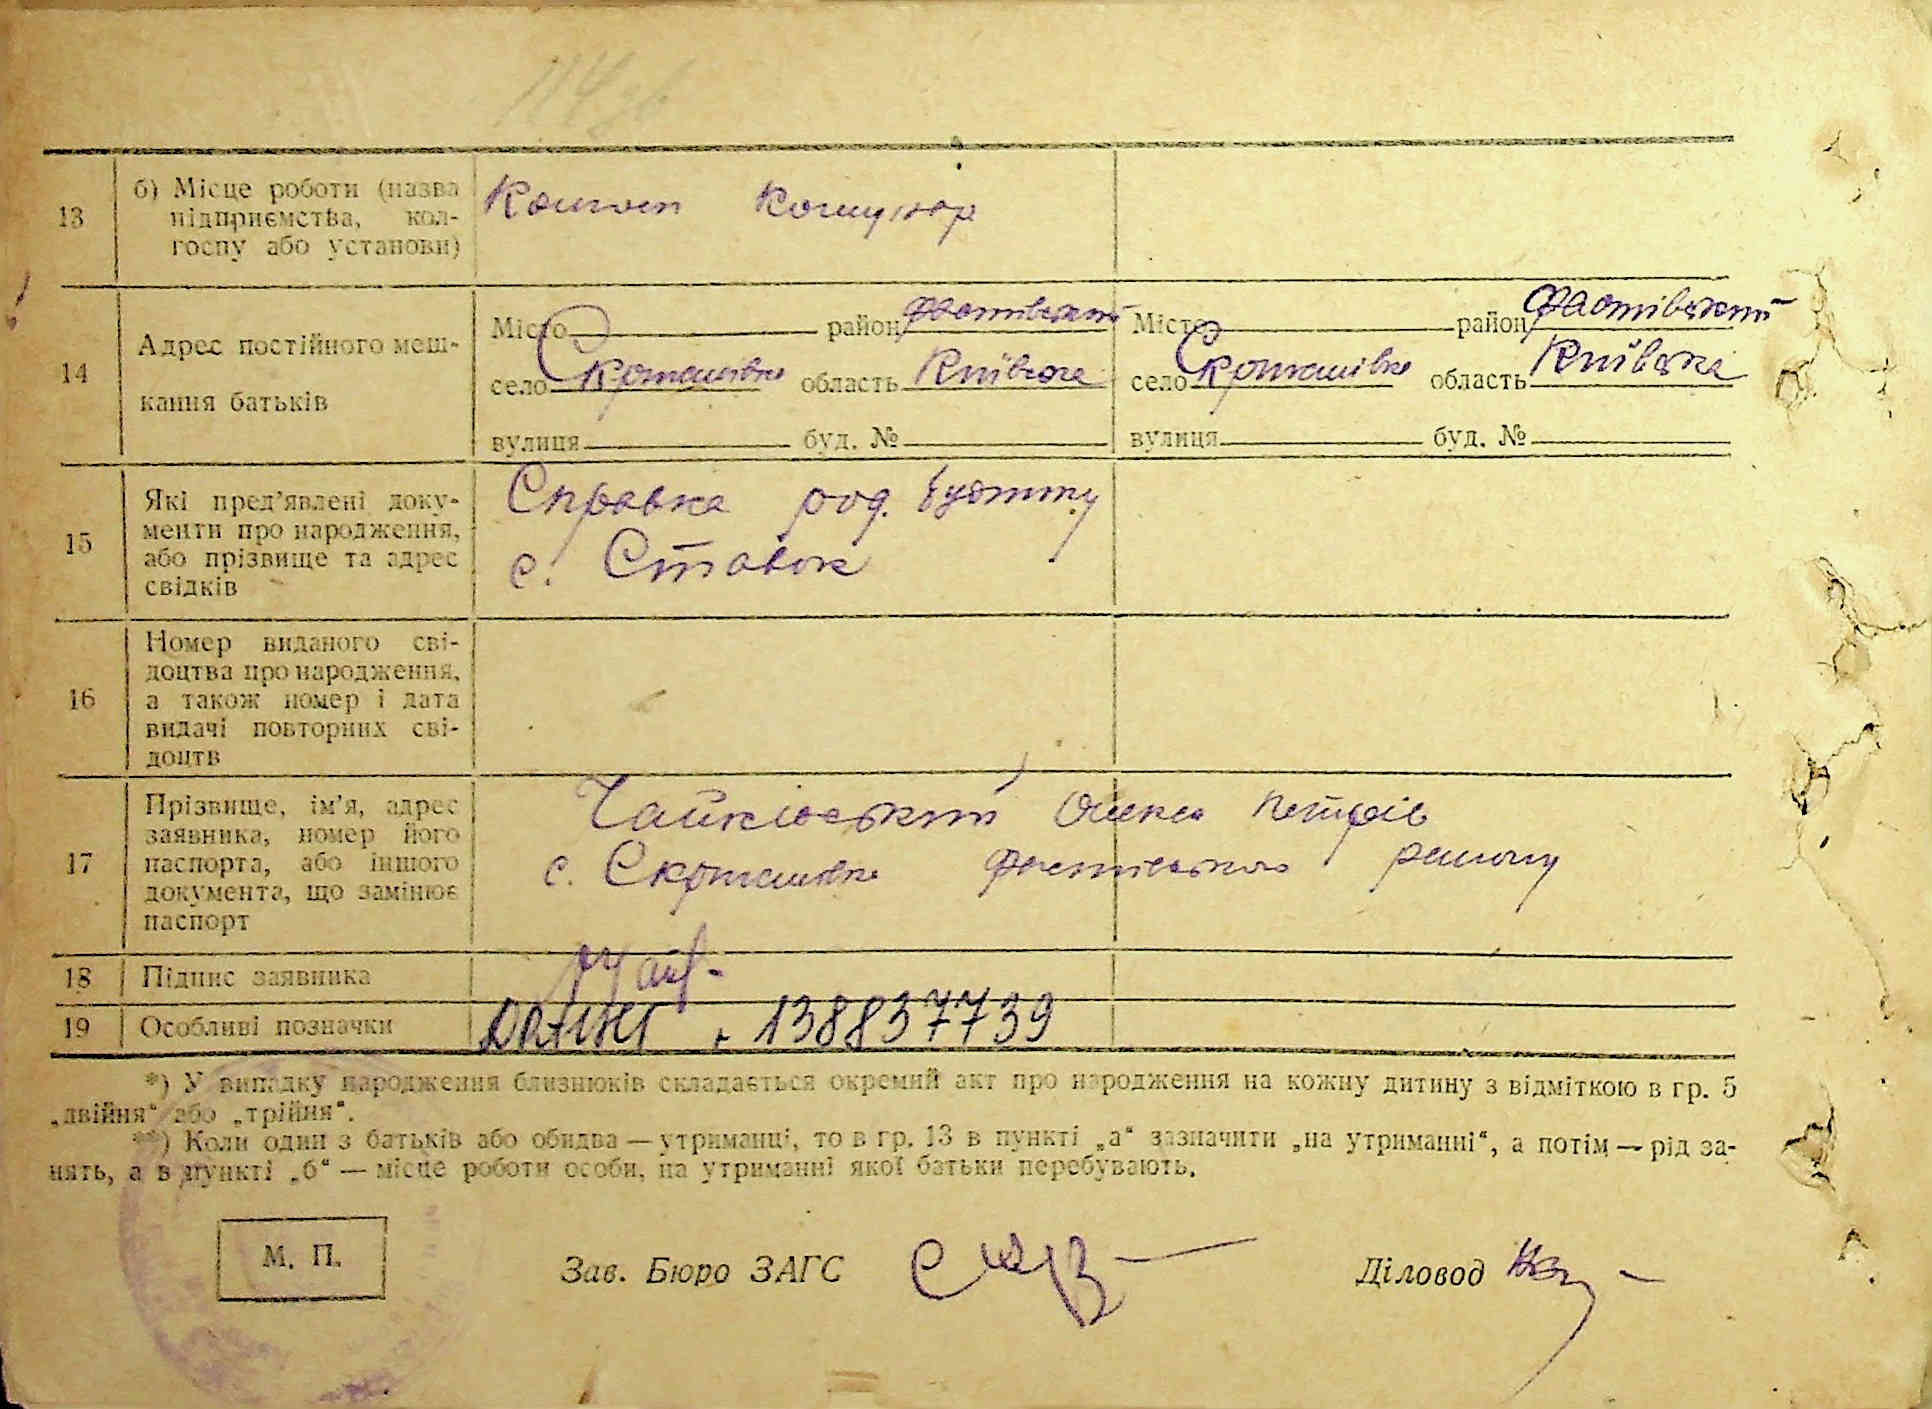 13
б) Місце роботи (назва
підприємства, кол-
госпу або установи)
Колгосп Комунар
14
Адрес постійного меш-
кання батьків
Місто район Фастівський
село Скригалівка область Київська
вулиця буд. №
Місто район Фастівський
село Скригалівка область Київська
вулиця буд. №
15
Які пред'явлені доку-
менти про народження,
або прізвище та адрес
свідків
Справка род. будинку
с. Ставок
16
Номер виданого сві-
доцтва про народження,
а також номер і дата
видачі повторних сві-
доцтв
17
Прізвище, ім'я, адрес
заявника, номер його
паспорта, або іншого
документа, що замінює
паспорт
Чайківський Олекса Петрів
с. Скригалівка Фастівського району
18
Підпис заявника
19
Особливі позначки
138837739
*) У випадку народження близнюків складається окремий акт про народження на кожну дитину з відміткою в гр. 5
„двійня“ або „трійня“.
**) Коли один з батьків або обидва — утриманці, то в гр. 13 в пункті „а“ зазначити „на утриманні“, а потім — рід за-
нять, а в пункті „б“ — місце роботи особи, на утриманні якої батьки перебувають.
М. П.
Зав. Бюро ЗАГС
Діловод